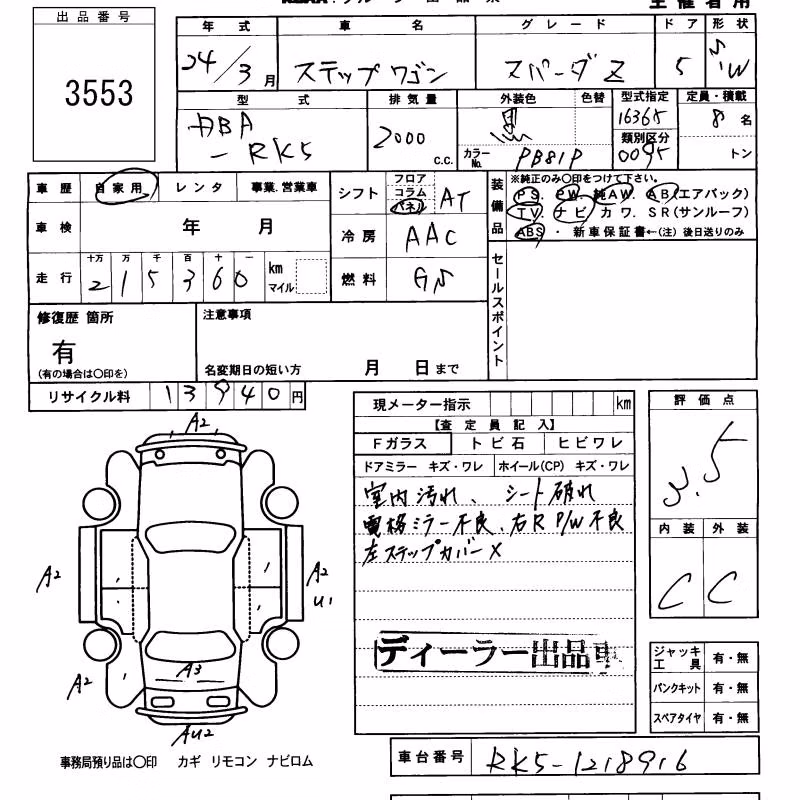 出品番号
3553
年式 車名 グレード ドア 形状
24/3月 ステップワゴン スパーダZ 5 S/W
型式 排気量 外装色 色替 型式指定 定員・積載
DBA-RK5 2000 C.C. 黒 16365 8名
カラーNo. PB81P 類別区分 0095 トン
車歴 自家用 レンタ 事業.営業車
車検 年 月
走行 十万 万 千 百 十 一
215360 km マイル
シフト フロア コラム パネル AT
冷房 AAC
燃料 GS
装備品 ※純正のみ〇印をつけて下さい。
PS. PW. 純AW. AB(エアバック)
TV. ナビ カワ. SR(サンルーフ)
ABS ・ 新車保証書←(注)後日送りのみ
セールスポイント
修復歴 箇所
有
(有の場合は〇印を)
注意事項
名変期日の短い方 月 日まで
リサイクル料 13940円
現メーター指示 km
【査定員記入】
Fガラス トビ石 ヒビワレ
ドアミラー キズ・ワレ ホイール(CP) キズ・ワレ
室内汚れ、シート破れ
電格ミラー不良、右R P/W不良
左ステップカバーX
ディーラー出品車
評価点
3.5
内装 外装
C C
ジャッキ工具 有・無
パンクキット 有・無
スペアタイヤ 有・無
A2
A2
A2
U1
A2
A3
AU2
事務局預り品は〇印 カギ リモコン ナビロム
車台番号 RK5-1218916